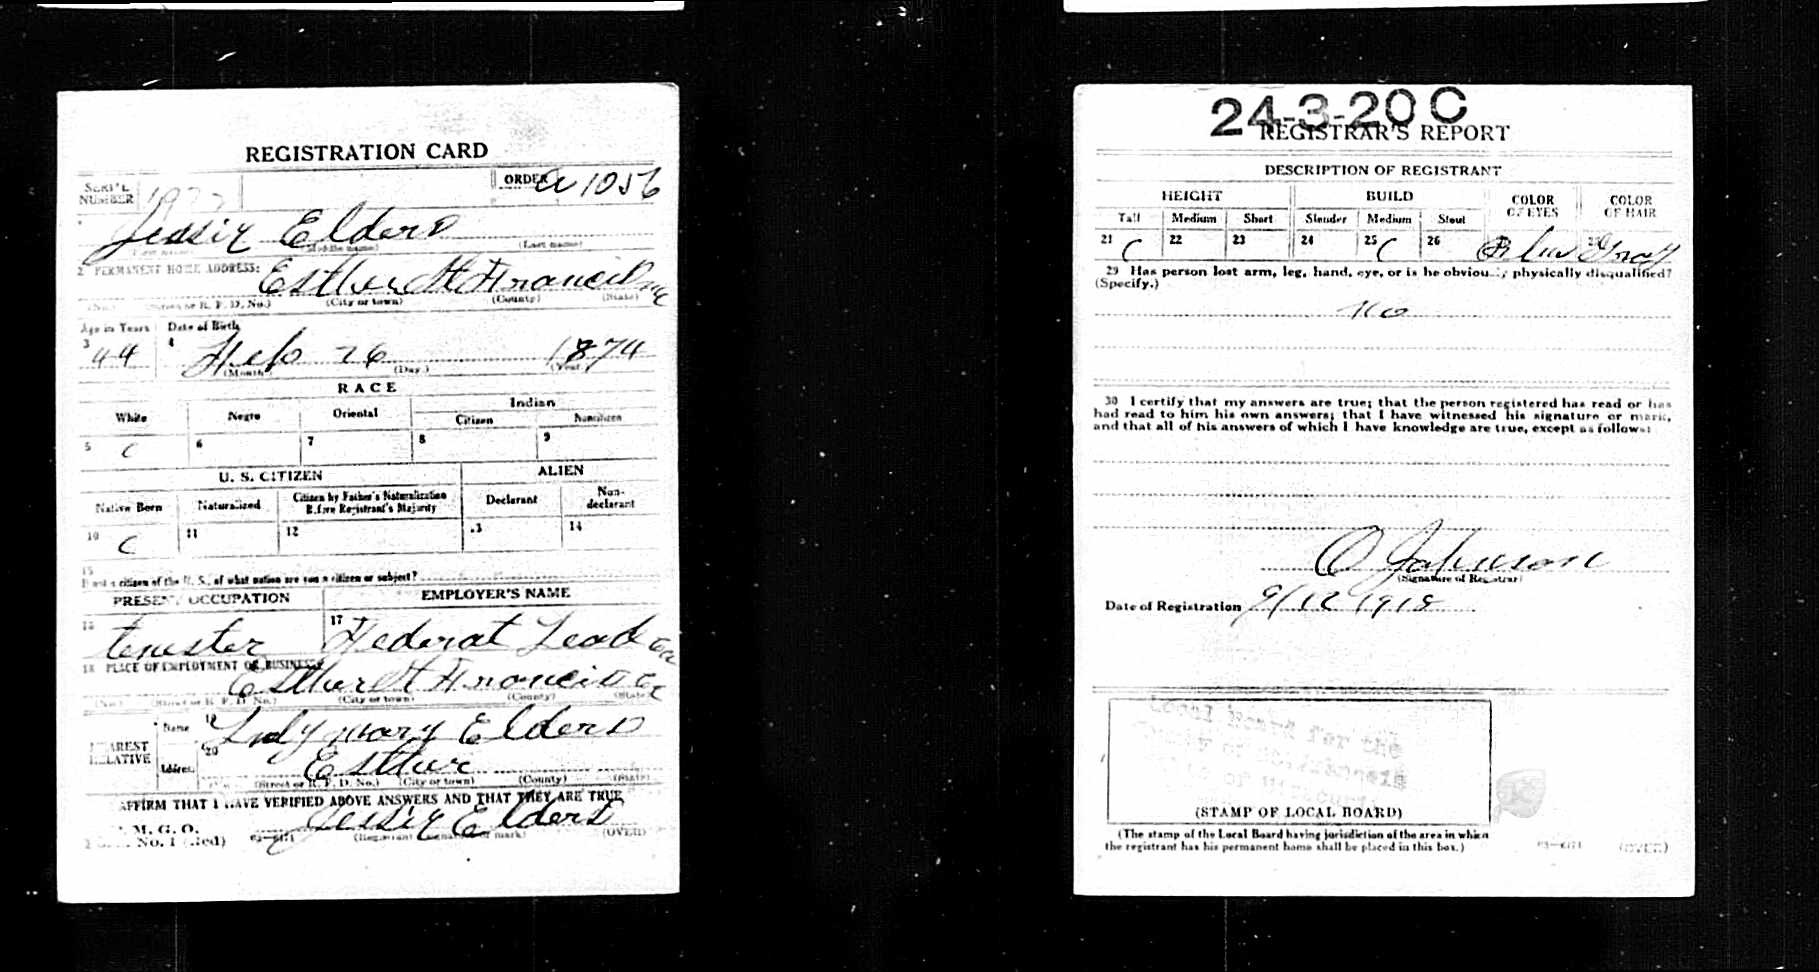 REGISTRATION CARD
SERIAL NUMBER
ORDER a 1056
Elders
(Middle name) (Last name)
2 PERMANENT HOME ADDRESS:
Esther St Francis Mo
(No.) (Street or R. F. D. No.) (City or town) (County) (State)
Age in Years Date of Birth
3 44 4 Feb 26 1874
(Month) (Day.) (Year.)
RACE
White Negro Oriental Indian
Citizen Noncitizen
5 6 7 8 9
U. S. CITIZEN ALIEN
Native Born Naturalized Citizen by Father's Naturalization Before Registrant's Majority Declarant Non-declarant
10 11 12 13 14
15
If not a citizen of the U. S., of what nation are you a citizen or subject?
PRESENT OCCUPATION EMPLOYER'S NAME
16 17
temster Federal Lead Co
18 PLACE OF EMPLOYMENT OR BUSINESS:
Esther St Francis
(No.) (Street or R. F. D. No.) (City or town) (County) (State)
NEAREST RELATIVE
Name 19 mary Elders
Address 20 Esther
(Street or R. F. D. No.) (City or town) (County) (State)
AFFIRM THAT I HAVE VERIFIED ABOVE ANSWERS AND THAT THEY ARE TRUE
P. M. G. O.
No. 1 (Red) 03-6171 Elders (OVER)
24-3-20 C
REGISTRAR'S REPORT
DESCRIPTION OF REGISTRANT
HEIGHT BUILD COLOR OF EYES COLOR OF HAIR
Tall Medium Short Slender Medium Stout
21 22 23 24 25 26 Blue Gray
29 Has person lost arm, leg, hand, eye, or is he obviously physically disqualified?
(Specify.)
No
30 I certify that my answers are true; that the person registered has read or has
had read to him his own answers; that I have witnessed his signature or mark,
and that all of his answers of which I have knowledge are true, except as follows:
O Johnson
(Signature of Registrar)
Date of Registration 9/12 1918
Local Board for the
(STAMP OF LOCAL BOARD)
(The stamp of the Local Board having jurisdiction of the area in which
the registrant has his permanent home shall be placed in this box.)
03-6171 (OVER)